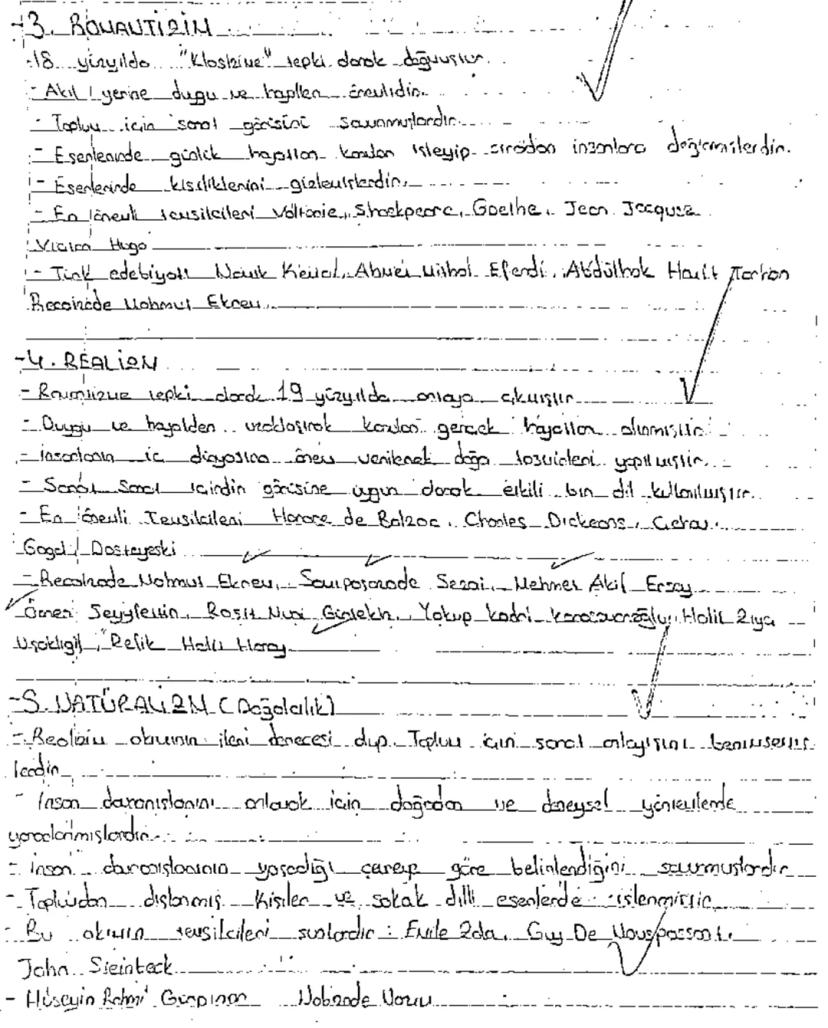 -3. ROMANTİZİM
-18. yüzyılda "Klasizme" tepki olarak doğmuştur.
- Akıl yerine duygu ve hayaller önemlidir.
- Toplum için sanat görüşünü savunmuşlardır.
- Eserlerinde günlük hayattan konuları işleyip sıradan insanlara değişmişlerdir.
- Eserlerinde kişiliklerini gizlemişlerdir.
- En önemli temsilcileri Voltraie, Shackpeare, Goethe, Jean Jacques
Victor Hugo
- Türk edebiyatı Namık Kemal, Ahmet Mithat Efendi, Abdülhak Hamit Tarhan
Recaizade Mahmut Ekrem
-4. REALİZM
- Romantizme tepki olarak 19 yüzyılda ortaya çıkmıştır
- Duygu ve hayalden uzaklaşarak konuları gerçek hayattan alınmıştır.
- İnsanların iç dünyasına önem verilerek doğa tasvirleri yapılmıştır.
- Sanat sanat içindir görüşüne uygun olarak etkili bir dil kullanılmıştır.
- En önemli Temsilcileri Honore de Balzac, Charles Dickeans,
Gogol, Dostoyeski
- Recaizade Mahmut Ekrem, Samipaşazade Sezai, Mehmet Akif Ersoy
Ömer Seyfettin, Reşit Nuri Güntekin, Yakup Kadri Karaosmanoğlu, Halit Ziya
Uşaklıgil, Refik Halit Karay
-5. NATÜRALİZM (Doğalcılık)
- Realizm akımının ileri derecesi olup. Toplum için sanat anlayışını benimsemiş
lerdir
- İnsan davranışlarını anlamak için doğadan ve deneysel yöntemlerde
yararlanmışlardır.
- İnsan davranışlarının yaşadığı çevreye göre belirlendiğini savunmuşlardır
- Toplumdan dışlanmış kişiler ve sokak dilli eserlerde işlenmiştir
- Bu akımın temsilcileri şunlardır: Emile Zola, Guy De Mouspassant,
John Steinteck
- Hüseyin Rahmi Gürpınar Nabizade Nazım